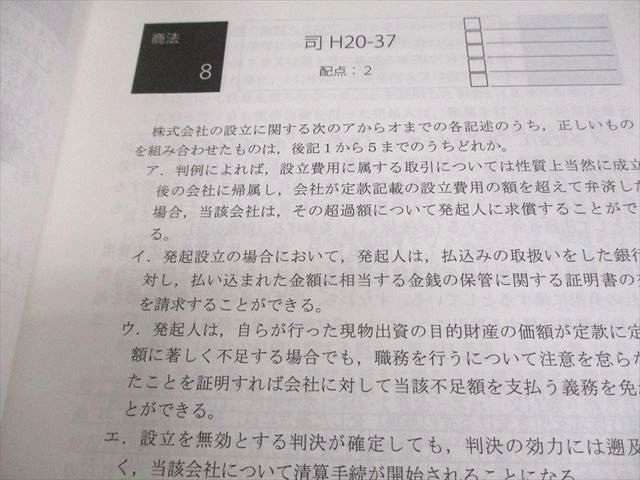 商法
8
司 H20-37
配点：２
株式会社の設立に関する次のアからオまでの各記述のうち，正しいもの
を組み合わせたものは，後記１から５までのうちどれか。
ア．判例によれば，設立費用に属する取引については性質上当然に成立
後の会社に帰属し，会社が定款記載の設立費用の額を超えて弁済した
場合，当該会社は，その超過額について発起人に求償することがで
る。
イ．発起設立の場合において，発起人は，払込みの取扱いをした銀行
対し，払い込まれた金額に相当する金銭の保管に関する証明書の
を請求することができる。
ウ．発起人は，自らが行った現物出資の目的財産の価額が定款に定
額に著しく不足する場合でも，職務を行うについて注意を怠らな
たことを証明すれば会社に対して当該不足額を支払う義務を免
とができる。
エ．設立を無効とする判決が確定しても，判決の効力には遡及
く，当該会社について清算手続が開始されることになる